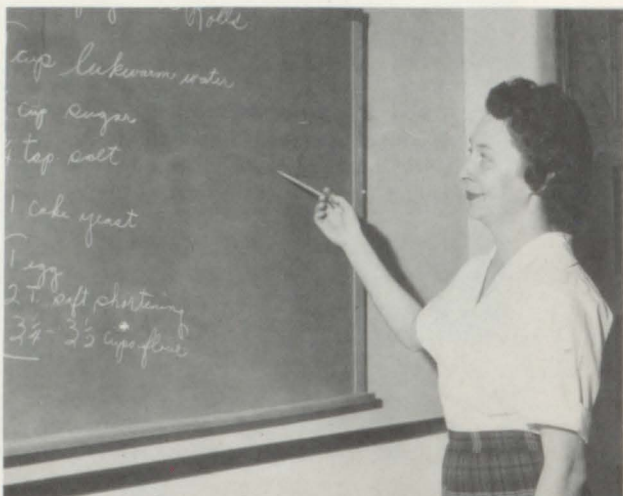 Rolls
cup lukewarm water
cup sugar
tsp salt
1 cake yeast
1 egg
2 T. soft shortening
3¼ - 3½ cups flour